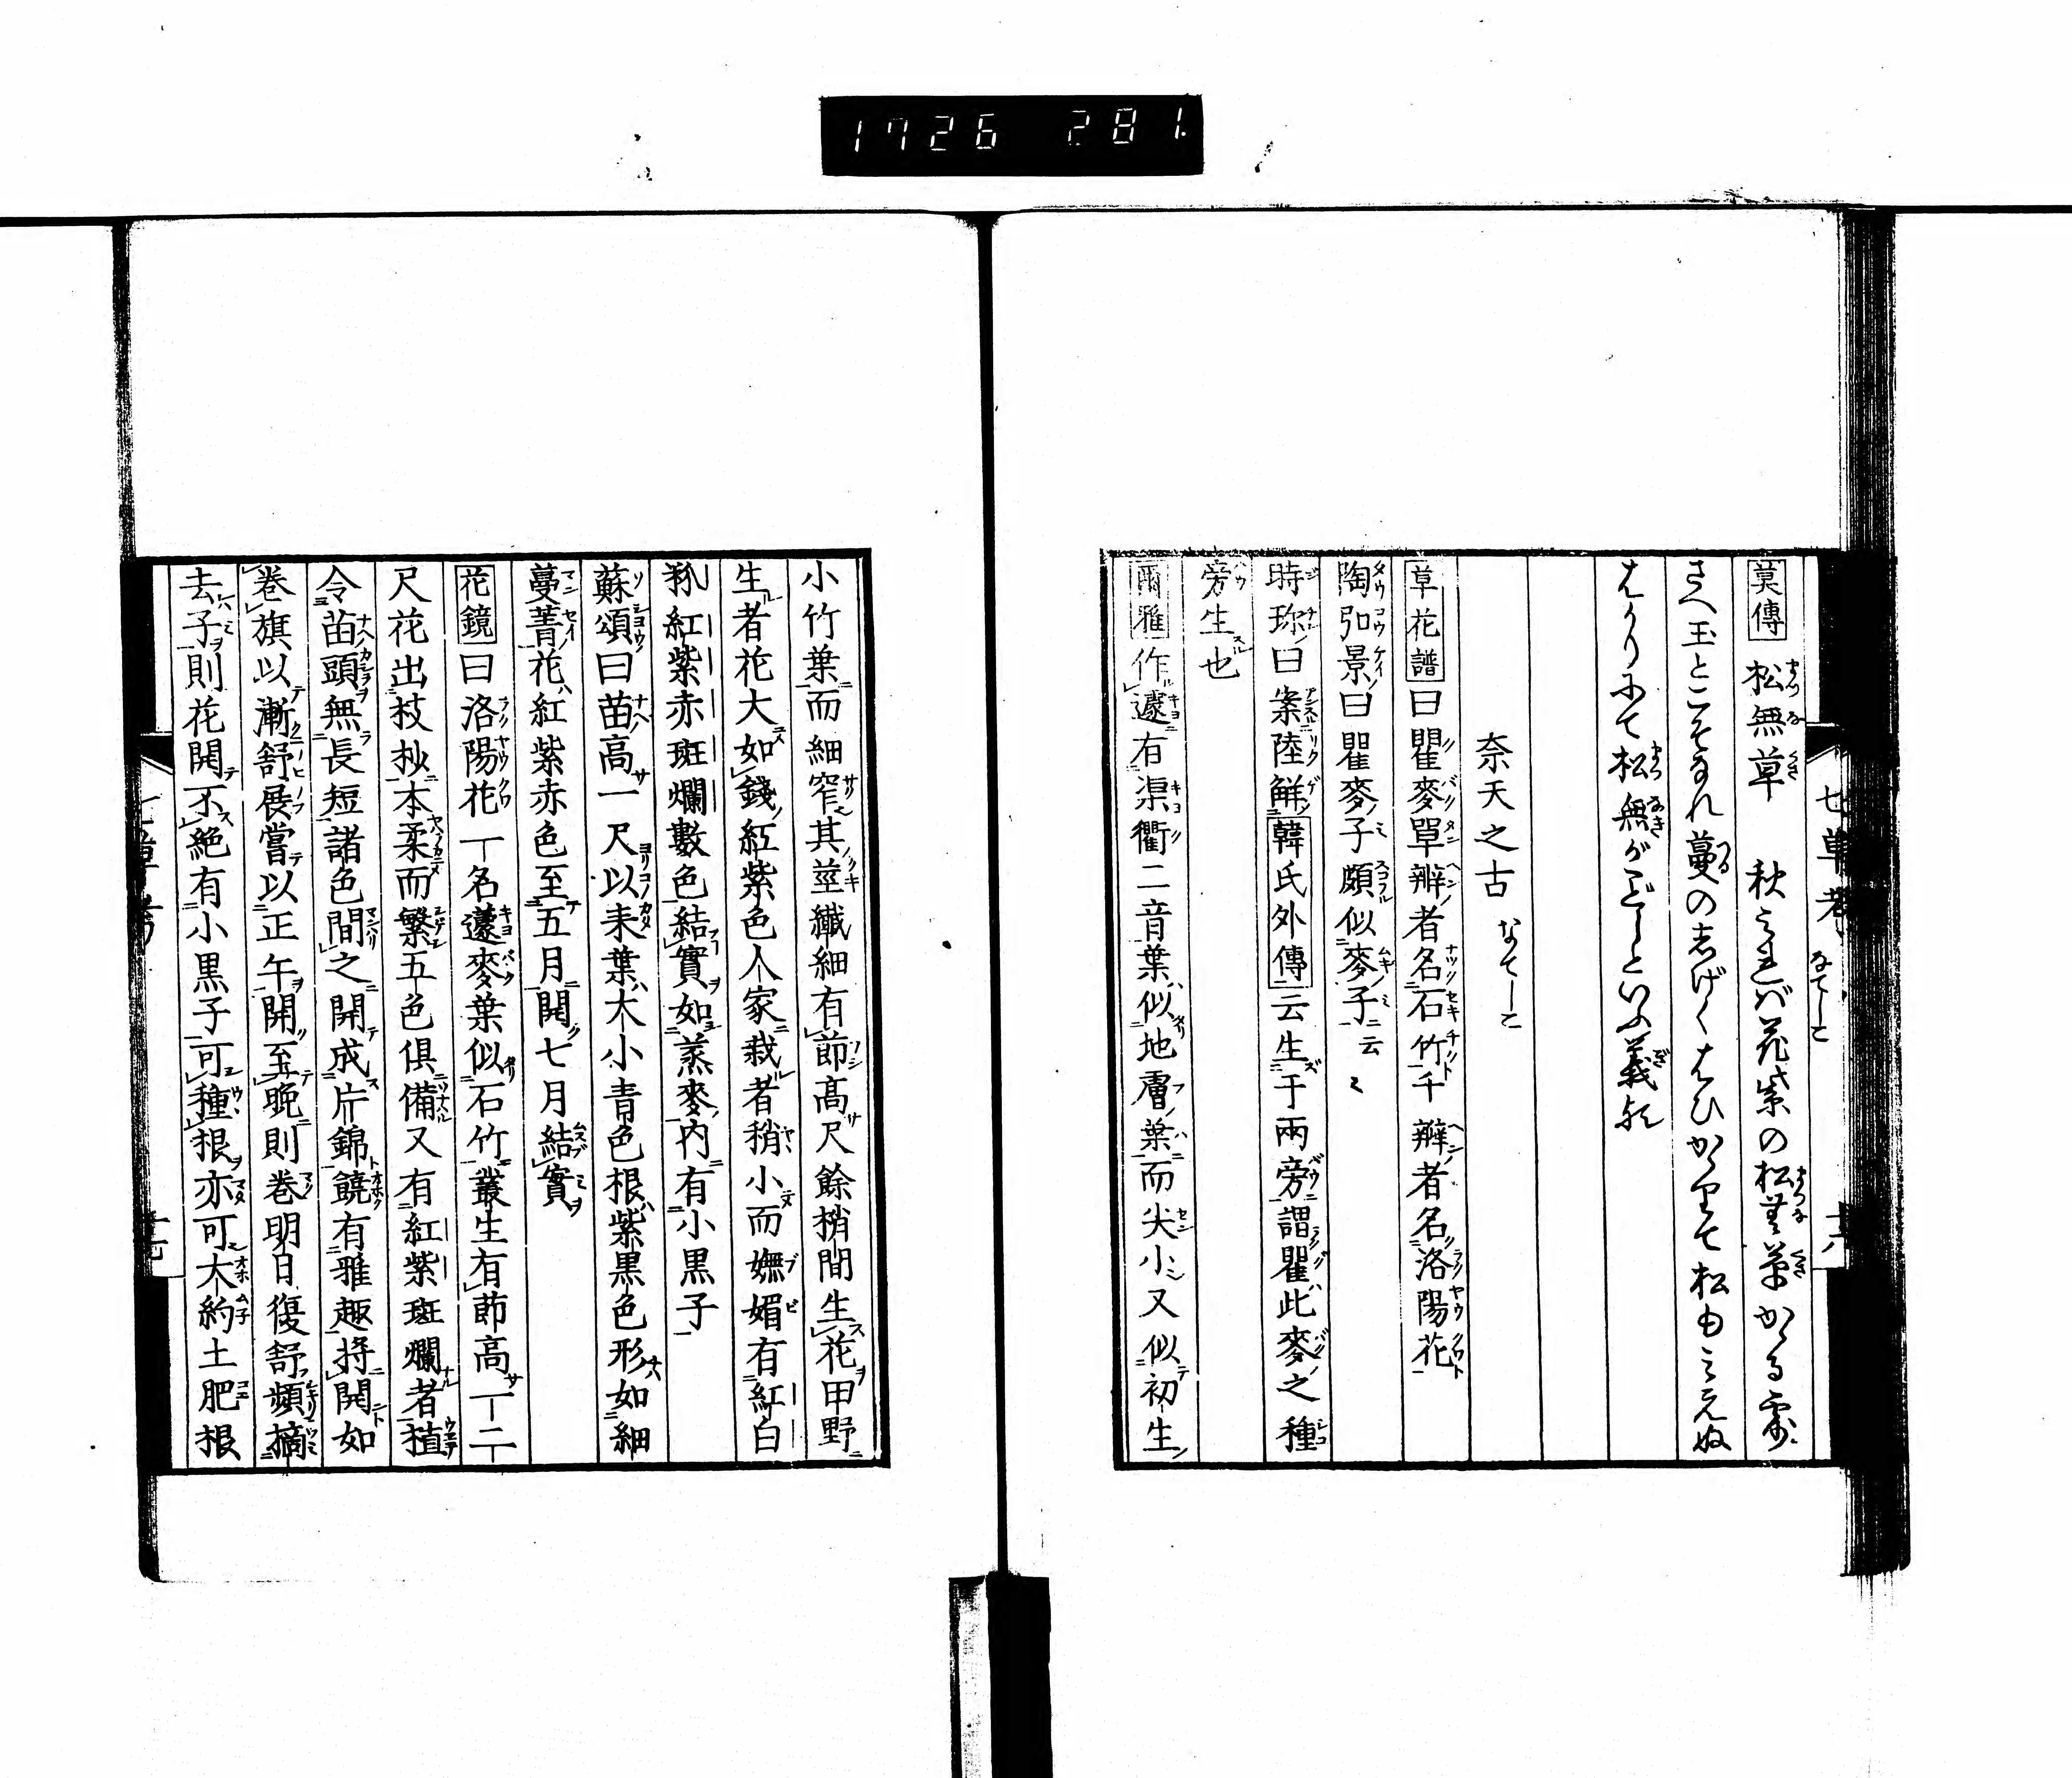 1726 281.
七草考 なてしこ 十六
莫傳 松無草 秋之花紫の松無草かる
さへ玉とこそなれ蔓のしげくはひかゝりて松もみえぬ
はかりにて松無がごとしといふ義
奈天之古 なてしこ
草花譜曰瞿麥單瓣者名石竹千瓣者名洛陽花
陶弘景曰瞿麥子頗似麥子云云
時珍曰案陸鮮韓氏外傳云生于兩旁謂瞿此麥之種
旁生也
爾雅作蘧有渠衢二音葉似地膚葉而尖小又似初生
小竹葉而細窄其莖纖細有節高尺餘梢間生花甲野
生者花大如錢紅紫色人家栽者稍小而嫵媚有紅白
粉紅紫赤斑爛數色結實如蒸麥内有小黒子
蘇頌曰苗高一尺以來葉大小青色根紫黒色形如細
蔓菁花紅紫赤色至五月開七月結實
花鏡曰洛陽花一名蘧麥葉似石竹叢生有節高一二
尺花出枝杪本柔而繁五色俱備又有紅紫斑爛者植
令苗頭無長短諸色間之開成片錦饒有雅趣将開如
巻旗以漸舒展嘗以正午開至晩則巻明日復舒頻摘
去子則花開不絶有小黒子可種根亦可大約土肥根
七草考